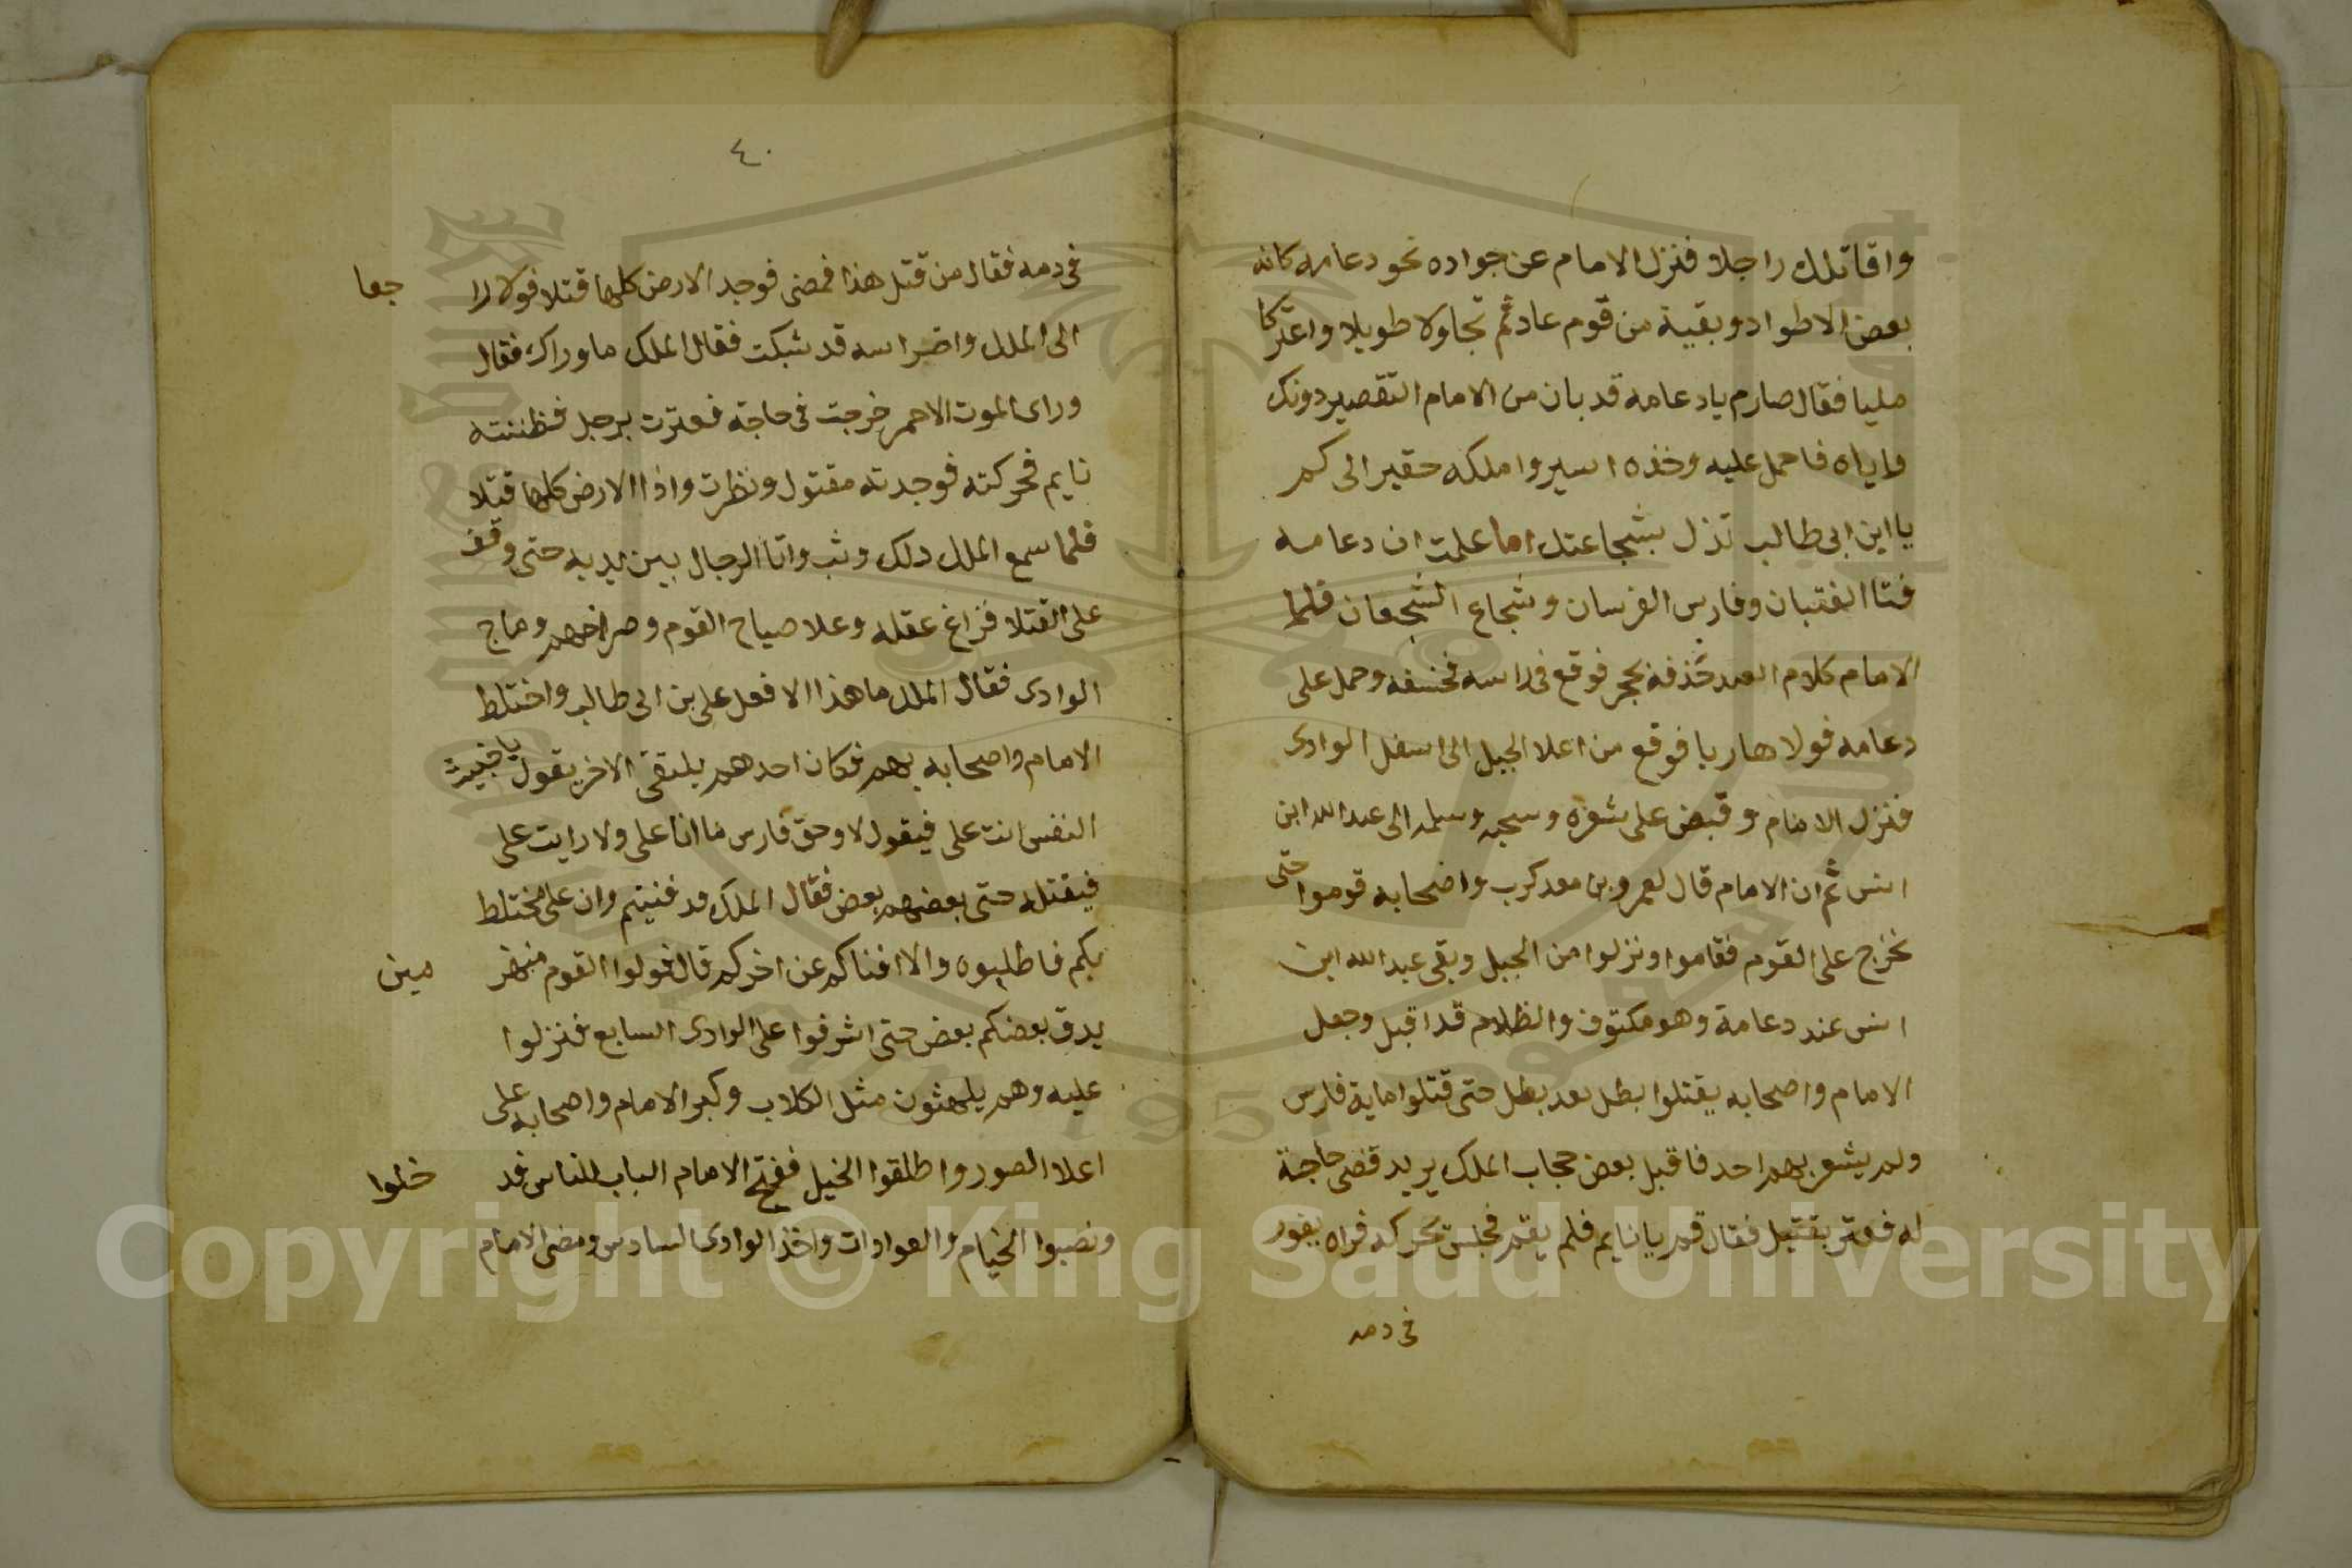 واقاتلك راجلا فنزل الامام عن جواده نحو دعامه كانه
بعض الاطواد وبقية من قوم عاد ثم تجاولا طويلا واعتركا
مليا فقال صارم يا دعامه قد بان من الامام التقصير دونك
واياه فاحمل عليه وخذه اسير واملكه حقير الى كم
يا ابن ابى طالب تذل بشجاعتك اما علمت ان دعامه
فتا الفتيان وفارس الفرسان وشجاع الشجعان فلما
الامام كلام العبد حذفه بحجر فوقع فى راسه فخسفه وحمل على
دعامه فولا هاربا فوقع من اعلا الجبل الى اسفل الوادى
فنزل الامام وقبض على شعره وسحبه وسلمه الى عبد الله ابن
انس ثم ان الامام قال لعمرو بن معد كرب واصحابه قوموا حتى
نخرج على القوم فقاموا ونزلوا من الجبل وبقى عبد الله ابن
انس عند دعامة وهو مكتوف والظلام قد اقبل وجعل
الامام واصحابه يقتلوا بطل بعد بطل حتى قتلوا ماية فارس
ولم يشعر بهم احد فاقبل بعض حجاب الملك يريد قضى حاجة
له فعتر بقتيل فقال قم يا نايم فلم يقم فجلس يحركه فراه يفور
فى دمه
٤٠
فى دمه فقال من قتل هذا فمضى فوجد الارض كلها قتلا فولا را جعا
الى الملك واضراسه قد شبكت فقال الملك ما وراك فقال
وراى الموت الاحمر خرجت فى حاجة فعترت برجل فظننته
نايم فحركته فوجدته مقتول ونظرت واذا الارض كلها قتلا
فلما سمع الملك دلك وثب واتا الرجال بين يديه حتى وقف
على القتلا فزاغ عقله وعلا صياح القوم وصراخهم وماج
الوادى فقال الملك ما هذا الا فعل على بن ابى طالب واختلط
الامام واصحابه بهم فكان احدهم يلتقى الاخر يقول يا خبيث
النفس انت على فيقول لا وحق فارس ما انا على ولا رايت على
فيقتله حتى بعضهم بعض فقال الملك قد فنيتم وان على مختلط
بكم فاطلبوه والا افناكم عن اخركم قال فولوا القوم منهز مين
يدق بعضكم بعض حتى اشرفوا على الوادى السابع فنزلوا
عليه وهم يلهثون مثل الكلاب وكبر الامام واصحابه على
اعلا الصور واطلقوا الخيل ففتح الامام الباب للناس فد خلوا
ونصبوا الخيام والعوادات واخذ الوادى السادس ومضى الامام
1957
Copyright © King Saud University